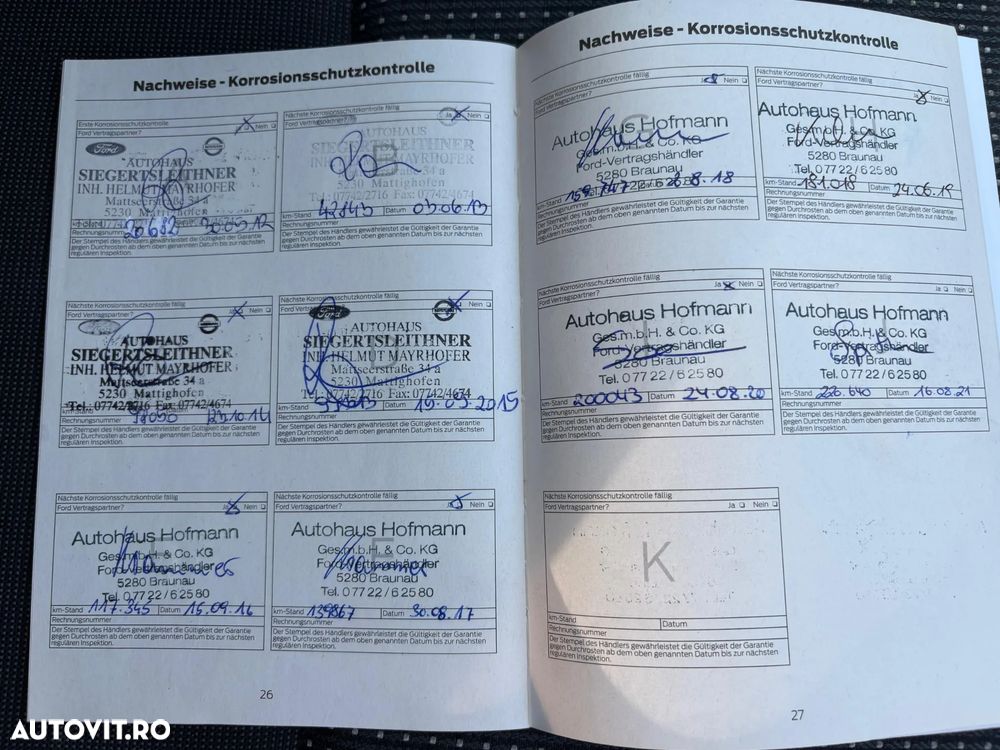 Nachweise - Korrosionsschutzkontrolle
Erste Korrosionsschutzkontrolle fällig
Ford Vertragspartner? Ja Nein
Ford
AUTOHAUS
SIEGERTSLEITHNER
INH. HELMUT MAYRHOFER
Mattseerstraße 34 a
5230 Mattighofen
Rechnungsnummer 20682 30.05.12
Der Stempel des Händlers gewährleistet die Gültigkeit der Garantie
gegen Durchrosten ab dem oben genannten Datum bis zur nächsten
regulären Inspektion.
Nächste Korrosionsschutzkontrolle fällig
Ford Vertragspartner? Ja Nein
AUTOHAUS
SIEGERTSLEITHNER
INH. HELMUT MAYRHOFER
Mattseerstraße 34 a
5230 Mattighofen
Tel.: 07742/2716 Fax: 07742/4674
km-Stand 42843 Datum 03.06.13
Rechnungsnummer
Der Stempel des Händlers gewährleistet die Gültigkeit der Garantie
gegen Durchrosten ab dem oben genannten Datum bis zur nächsten
regulären Inspektion.
Nächste Korrosionsschutzkontrolle fällig
Ford Vertragspartner? Ja Nein
AUTOHAUS
SIEGERTSLEITHNER
INH. HELMUT MAYRHOFER
Mattseerstraße 34 a
5230 Mattighofen
Tel.: 07742/2716 Fax: 07742/4674
km-Stand
Rechnungsnummer
Der Stempel des Händlers gewährleistet die Gültigkeit der Garantie
gegen Durchrosten ab dem oben genannten Datum bis zur nächsten
regulären Inspektion.
Nächste Korrosionsschutzkontrolle fällig
Ford Vertragspartner? Ja Nein
Ford
AUTOHAUS
SIEGERTSLEITHNER
INH. HELMUT MAYRHOFER
Mattseerstraße 34 a
5230 Mattighofen
Tel.: 07742/2716 Fax: 07742/4674
km-Stand Datum 2015
Rechnungsnummer
Der Stempel des Händlers gewährleistet die Gültigkeit der Garantie
gegen Durchrosten ab dem oben genannten Datum bis zur nächsten
regulären Inspektion.
Nächste Korrosionsschutzkontrolle fällig
Ford Vertragspartner? Ja Nein
Autohaus Hofmann
Ges.m.b.H. & Co. KG
Ford-Vertragshändler
5280 Braunau
Tel. 0 77 22 / 6 25 80
km-Stand 117.345 Datum 15.09.16
Rechnungsnummer
Der Stempel des Händlers gewährleistet die Gültigkeit der Garantie
gegen Durchrosten ab dem oben genannten Datum bis zur nächsten
regulären Inspektion.
Nächste Korrosionsschutzkontrolle fällig
Ford Vertragspartner? Ja Nein
Autohaus Hofmann
Ges.m.b.H. & Co. KG
Ford-Vertragshändler
5280 Braunau
Tel. 0 77 22 / 6 25 80
km-Stand 139867 Datum 30.08.17
Rechnungsnummer
Der Stempel des Händlers gewährleistet die Gültigkeit der Garantie
gegen Durchrosten ab dem oben genannten Datum bis zur nächsten
regulären Inspektion.
26
Nachweise - Korrosionsschutzkontrolle
Nächste Korrosionsschutzkontrolle fällig
Ford Vertragspartner? Ja Nein
G
Autohaus Hofmann
Ges.m.b.H. & Co. KG
Ford-Vertragshändler
5280 Braunau
Tel. 0 77 22 / 6 25 80
km-Stand 159.747 Datum 28.8.18
Rechnungsnummer
Der Stempel des Händlers gewährleistet die Gültigkeit der Garantie
gegen Durchrosten ab dem oben genannten Datum bis zur nächsten
regulären Inspektion.
Nächste Korrosionsschutzkontrolle fällig
Ford Vertragspartner? Ja Nein
Autohaus Hofmann
Ges.m.b.H. & Co. KG
Ford-Vertragshändler
5280 Braunau
Tel. 0 77 22 / 6 25 80
km-Stand 181.018 Datum 24.06.19
Rechnungsnummer
Der Stempel des Händlers gewährleistet die Gültigkeit der Garantie
gegen Durchrosten ab dem oben genannten Datum bis zur nächsten
regulären Inspektion.
Nächste Korrosionsschutzkontrolle fällig
Ford Vertragspartner? Ja Nein
Autohaus Hofmann
Ges.m.b.H. & Co. KG
Ford-Vertragshändler
5280 Braunau
Tel. 0 77 22 / 6 25 80
km-Stand 200043 Datum 24.08.20
Rechnungsnummer
Der Stempel des Händlers gewährleistet die Gültigkeit der Garantie
gegen Durchrosten ab dem oben genannten Datum bis zur nächsten
regulären Inspektion.
Nächste Korrosionsschutzkontrolle fällig
Ford Vertragspartner? Ja Nein
Autohaus Hofmann
Ges.m.b.H. & Co. KG
Ford-Vertragshändler
5280 Braunau
Tel. 0 77 22 / 6 25 80
km-Stand 226.640 Datum 16.08.21
Rechnungsnummer
Der Stempel des Händlers gewährleistet die Gültigkeit der Garantie
gegen Durchrosten ab dem oben genannten Datum bis zur nächsten
regulären Inspektion.
Nächste Korrosionsschutzkontrolle fällig
Ford Vertragspartner? Ja Nein
K
km-Stand Datum
Rechnungsnummer
Der Stempel des Händlers gewährleistet die Gültigkeit der Garantie
gegen Durchrosten ab dem oben genannten Datum bis zur nächsten
regulären Inspektion.
27
AUTOVIT.RO